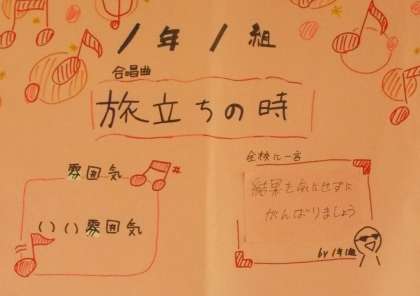 1年1組
合唱曲
旅立ちの時
雰囲気
いい雰囲気
全校に一言
結果を気にせずに
がんばりましょう
by 1年1組